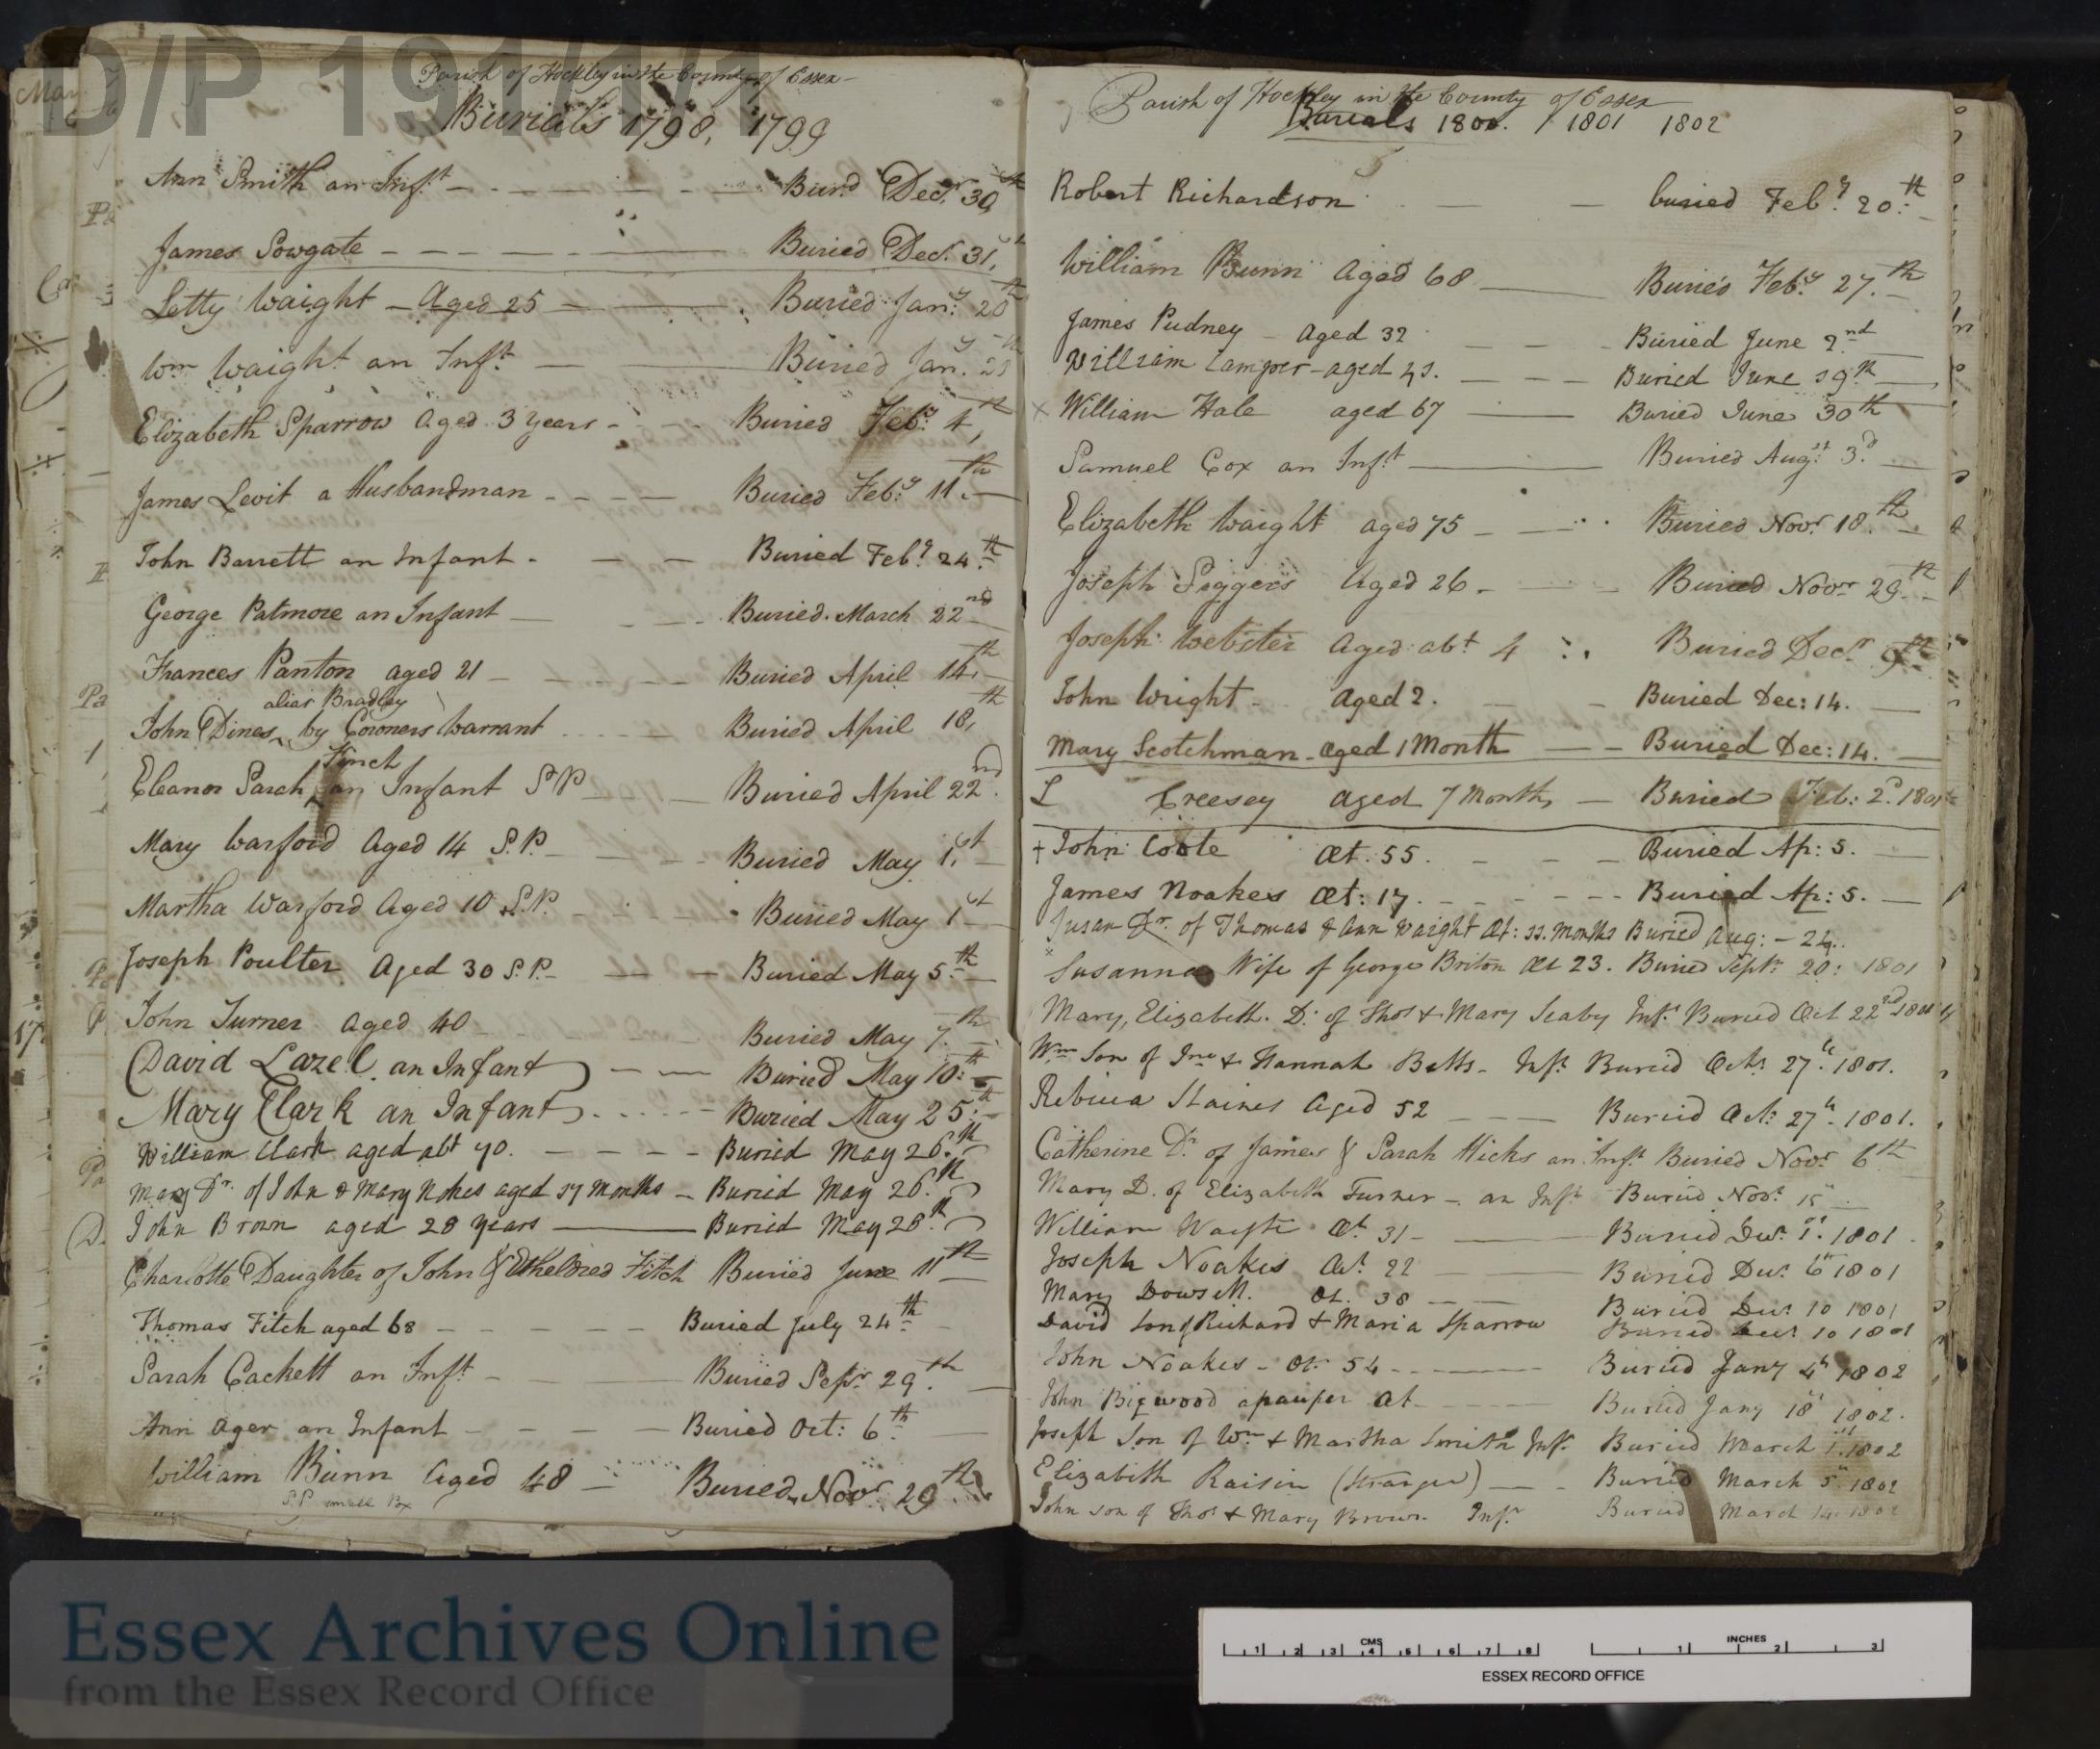 D/P 191/1/1
Parish of Hockley in the County of Essex
Burials 1798, 1799
Ann Smith an Inft Burd Decr 30th
James Sowgate Buried Decr 31st
Letty Waight Aged 25 Buried Jany 20th
Wm Waight an Inft Buried Jany
Elizabeth Sparrow Aged 3 years Buried Feby 4th
James Levit a Husbandman Buried Feby 11th
John Barrett an Infant Buried Feby 24th
George Patmore an Infant Buried March 22nd
Frances Panton aged 21 Buried April 14th
alias Bradley
John Dines by Coroners Warrant Buried April 18th
Finch
Eleanor Sarah an Infant S P Buried April 22nd
Mary Warford Aged 14 S.P. Buried May 1st
Martha Warford Aged 10 S.P. Buried May 1st
Joseph Poulter Aged 30 S.P. Buried May 5th
John Turner Aged 40 Buried May 7th
David Lazel an Infant Buried May 10th
Mary Clark an Infant Buried May 25th
William Clark aged abt 70. Buried May 26th
Mary Dr. of John & Mary Nokes aged 17 months Buried May 26th
John Brown aged 28 years Buried May 28th
Charlotte Daughter of John & Etheldred Fitch Buried June 11th
Thomas Fitch aged 68 Buried July 24th
Sarah Cackett an Inft Buried Sepr 29th
Ann Ager an Infant Buried Oct: 6th
William Bunn Aged 48 Buried Novr 29th
S.P. small Pox
Parish of Hockley in the County of Essex
Burials 1800. 1801 1802
Robert Richardson buried Feby 20th
William Bunn Aged 68 Buried Feby 27th
James Pudney Aged 32 Buried June 2nd
William Camper aged 41. Buried June 19th
William Hale aged 67 Buried June 30th
Samuel Cox an Inft Buried Augst 3d
Elizabeth Waight aged 75 Buried Novr 18th
Joseph Seggers Aged 26 Buried Novr 29th
Joseph Webster Aged abt 4 Buried Decr 9th
John Wright Aged 2. Buried Dec: 14.
Mary Scotchman aged 1 Month Buried Dec: 14.
L Creesey aged 7 Months Buried Feb: 2d 1801
+ John Coole Æt. 55. Buried Ap: 5.
James Noakes Æt: 17. Buried Ap: 5.
Susan Dr. of Thomas & Ann Waight Æt: 11. Months Buried Aug: 24.
Susanna Wife of George Briton Æt 23. Buried Sept: 20: 1801
Mary, Elizabeth. D. of Thos & Mary Seaby Inft Buried Oct 22nd 1801
Wm Son of Jno & Hannah Betts Inft Buried Octr 27th 1801.
Rebecca Staines Aged 52 Buried Oct: 27th 1801.
Catherine Dr. of James & Sarah Hicks an Inft Buried Novr 6th
Mary D. of Elizabeth Turner an Inft Buried Novr 15th
William Æt 31 Buried Decr 1st 1801
Joseph Noakes Æt. 22 Buried Decr 6th 1801
Mary Dowsett. Æt. 38 Buried Decr 10 1801
David Son of Richard & Maria Sparrow Buried Decr 10 1801
John Noakes Æt 54 Buried Jany 4th 1802
John Bigwood a pauper Æt Buried Jany 18th 1802.
Joseph Son of Wm & Martha Smith Inft Buried March 1st 1802
Elizabeth Raisin (Stranger) Buried March 5th 1802
John son of Thos & Mary Brown Inft Buried March 14 1802
Essex Archives Online
from the Essex Record Office
CMS
1 2 3 4 5 6 7 8
INCHES
1 2 3
ESSEX RECORD OFFICE